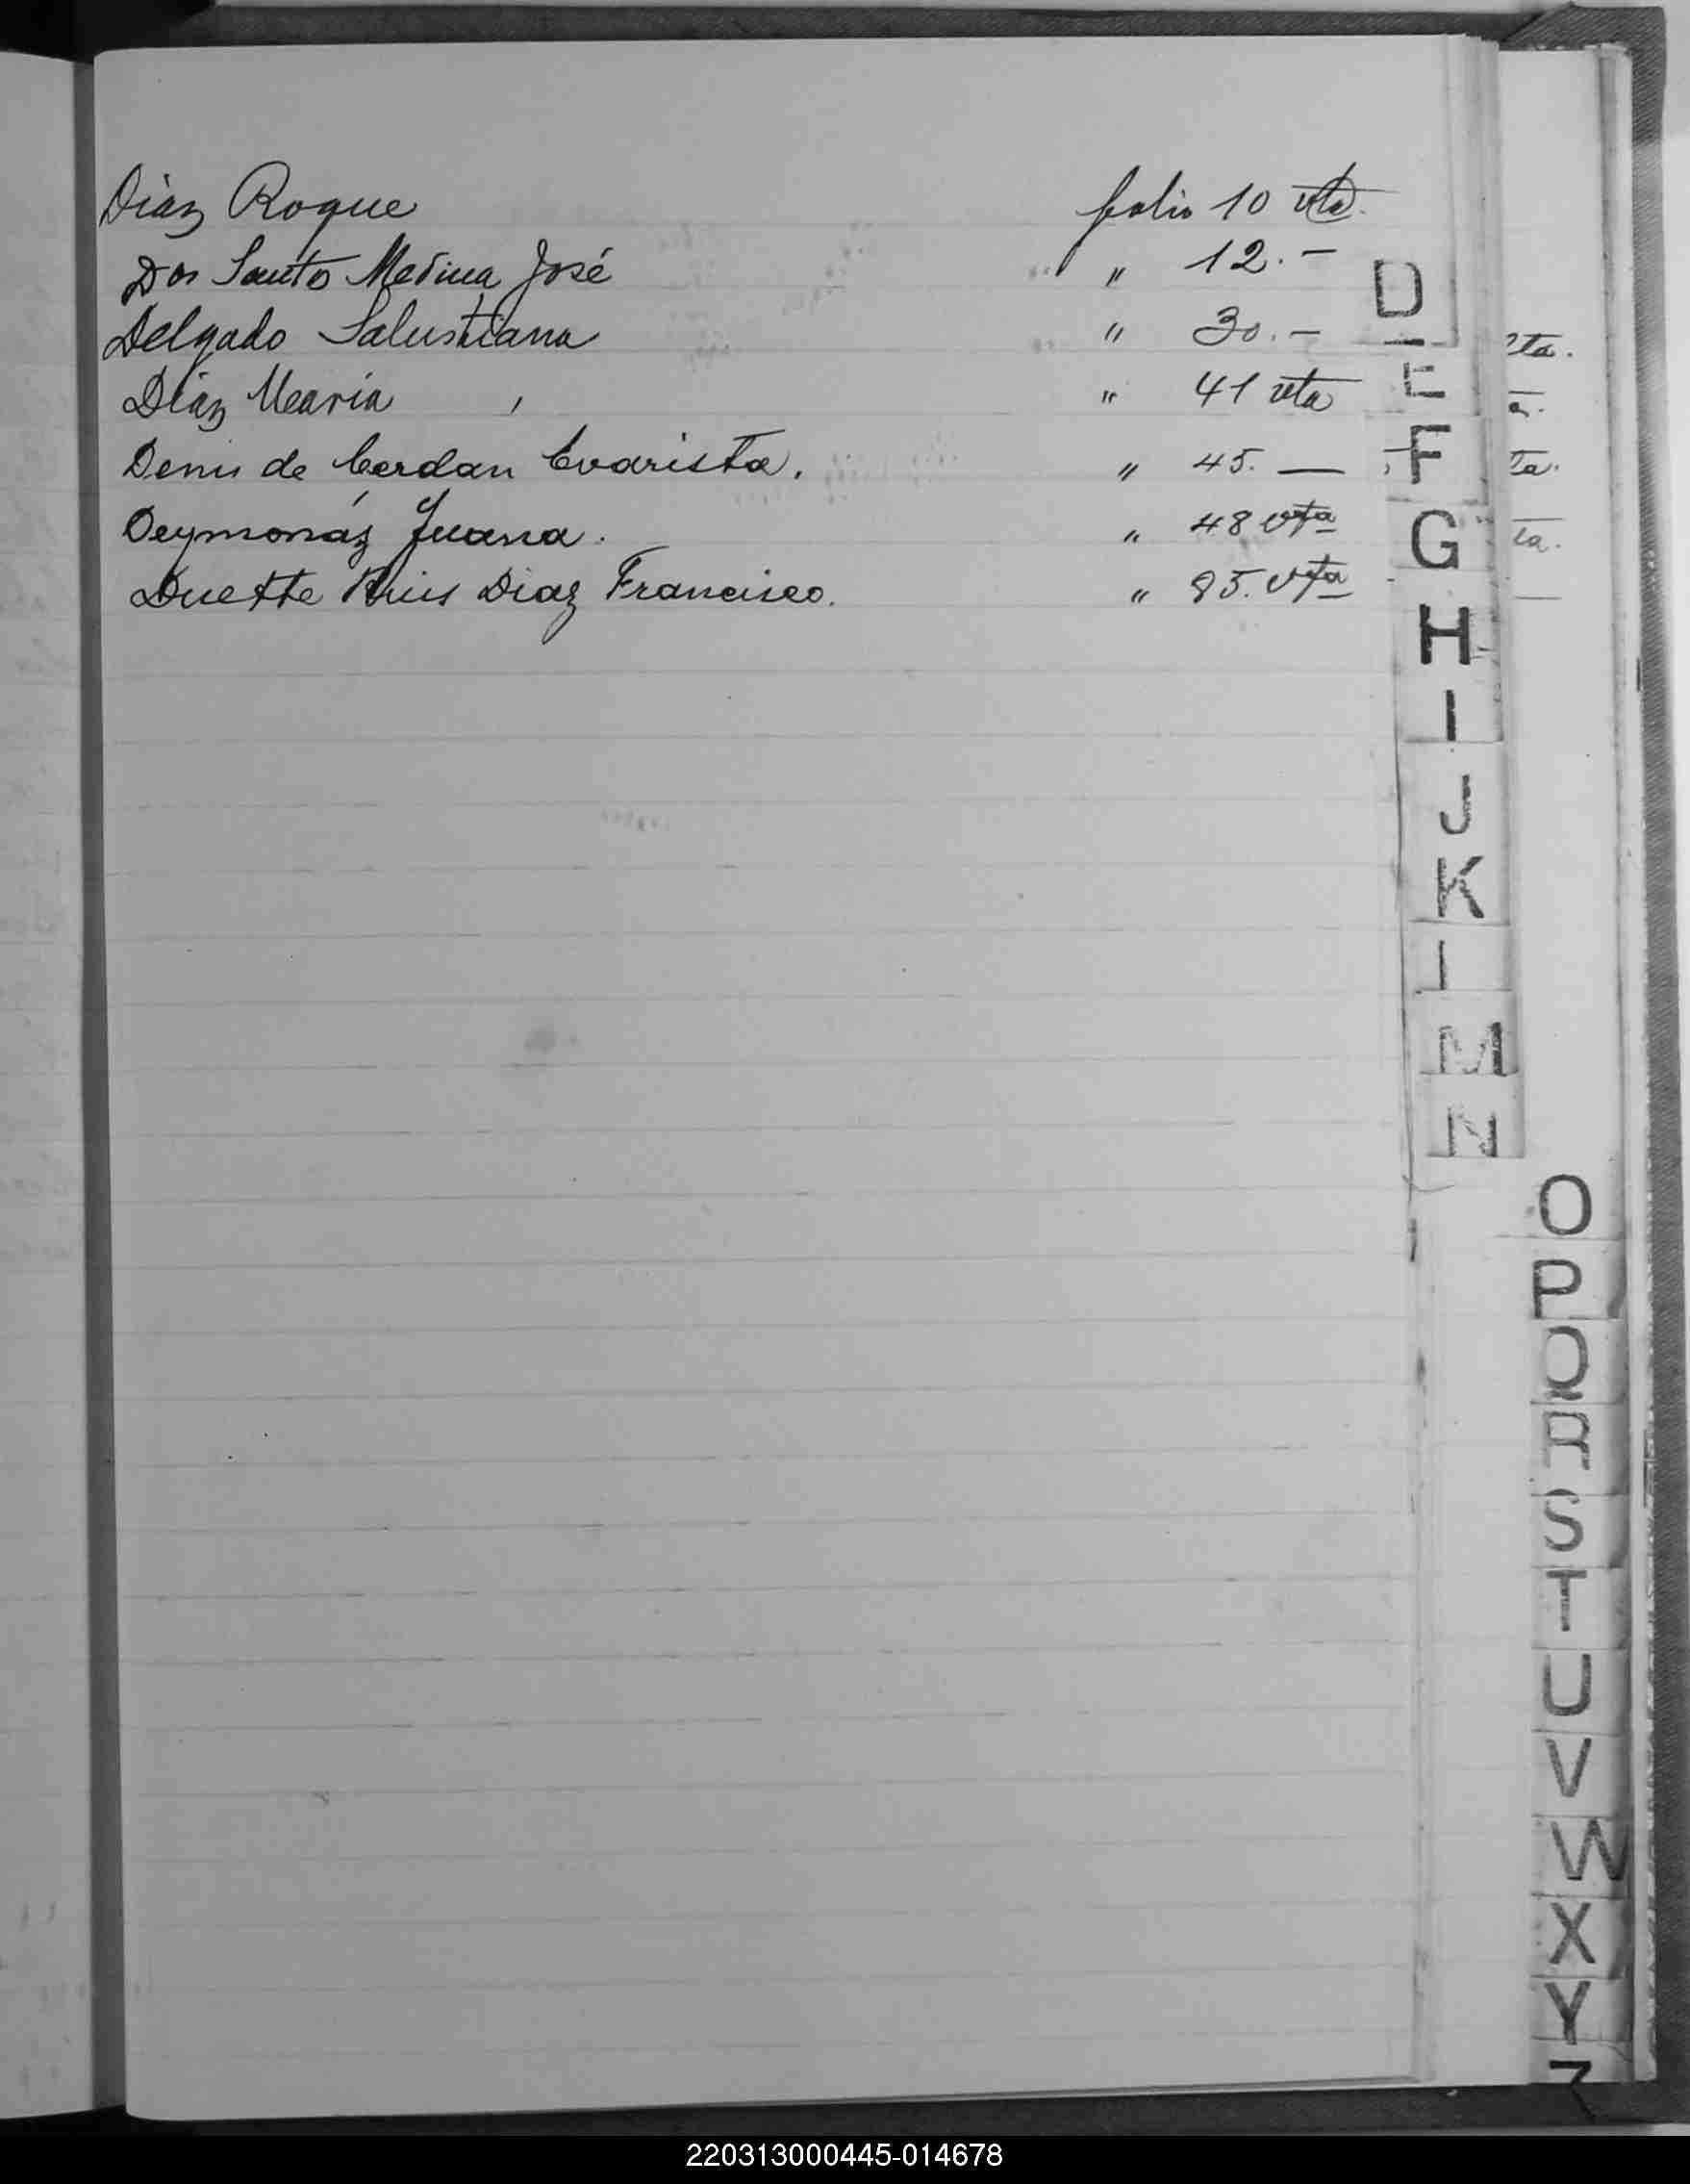 Diaz Roque folio 10 vta.
Dos Santo Medina José " 12.-
Delgado Salustiana " 30.-
Diaz Maria " 41 vta
Denis de Cerdan Evarista. " 45. —
Deymonáz Juana. " 48 vta
Duette Ruis Diaz Francisco. " 85. vta
D
E
F
G
H
I
J
K
L
M
N
O
P
Q
R
S
T
U
V
W
X
Y
Z
220313000445-014678